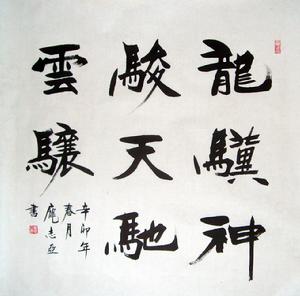 龍驥神
駿天馳
雲驤
辛卯年
春月
龐志亞
書